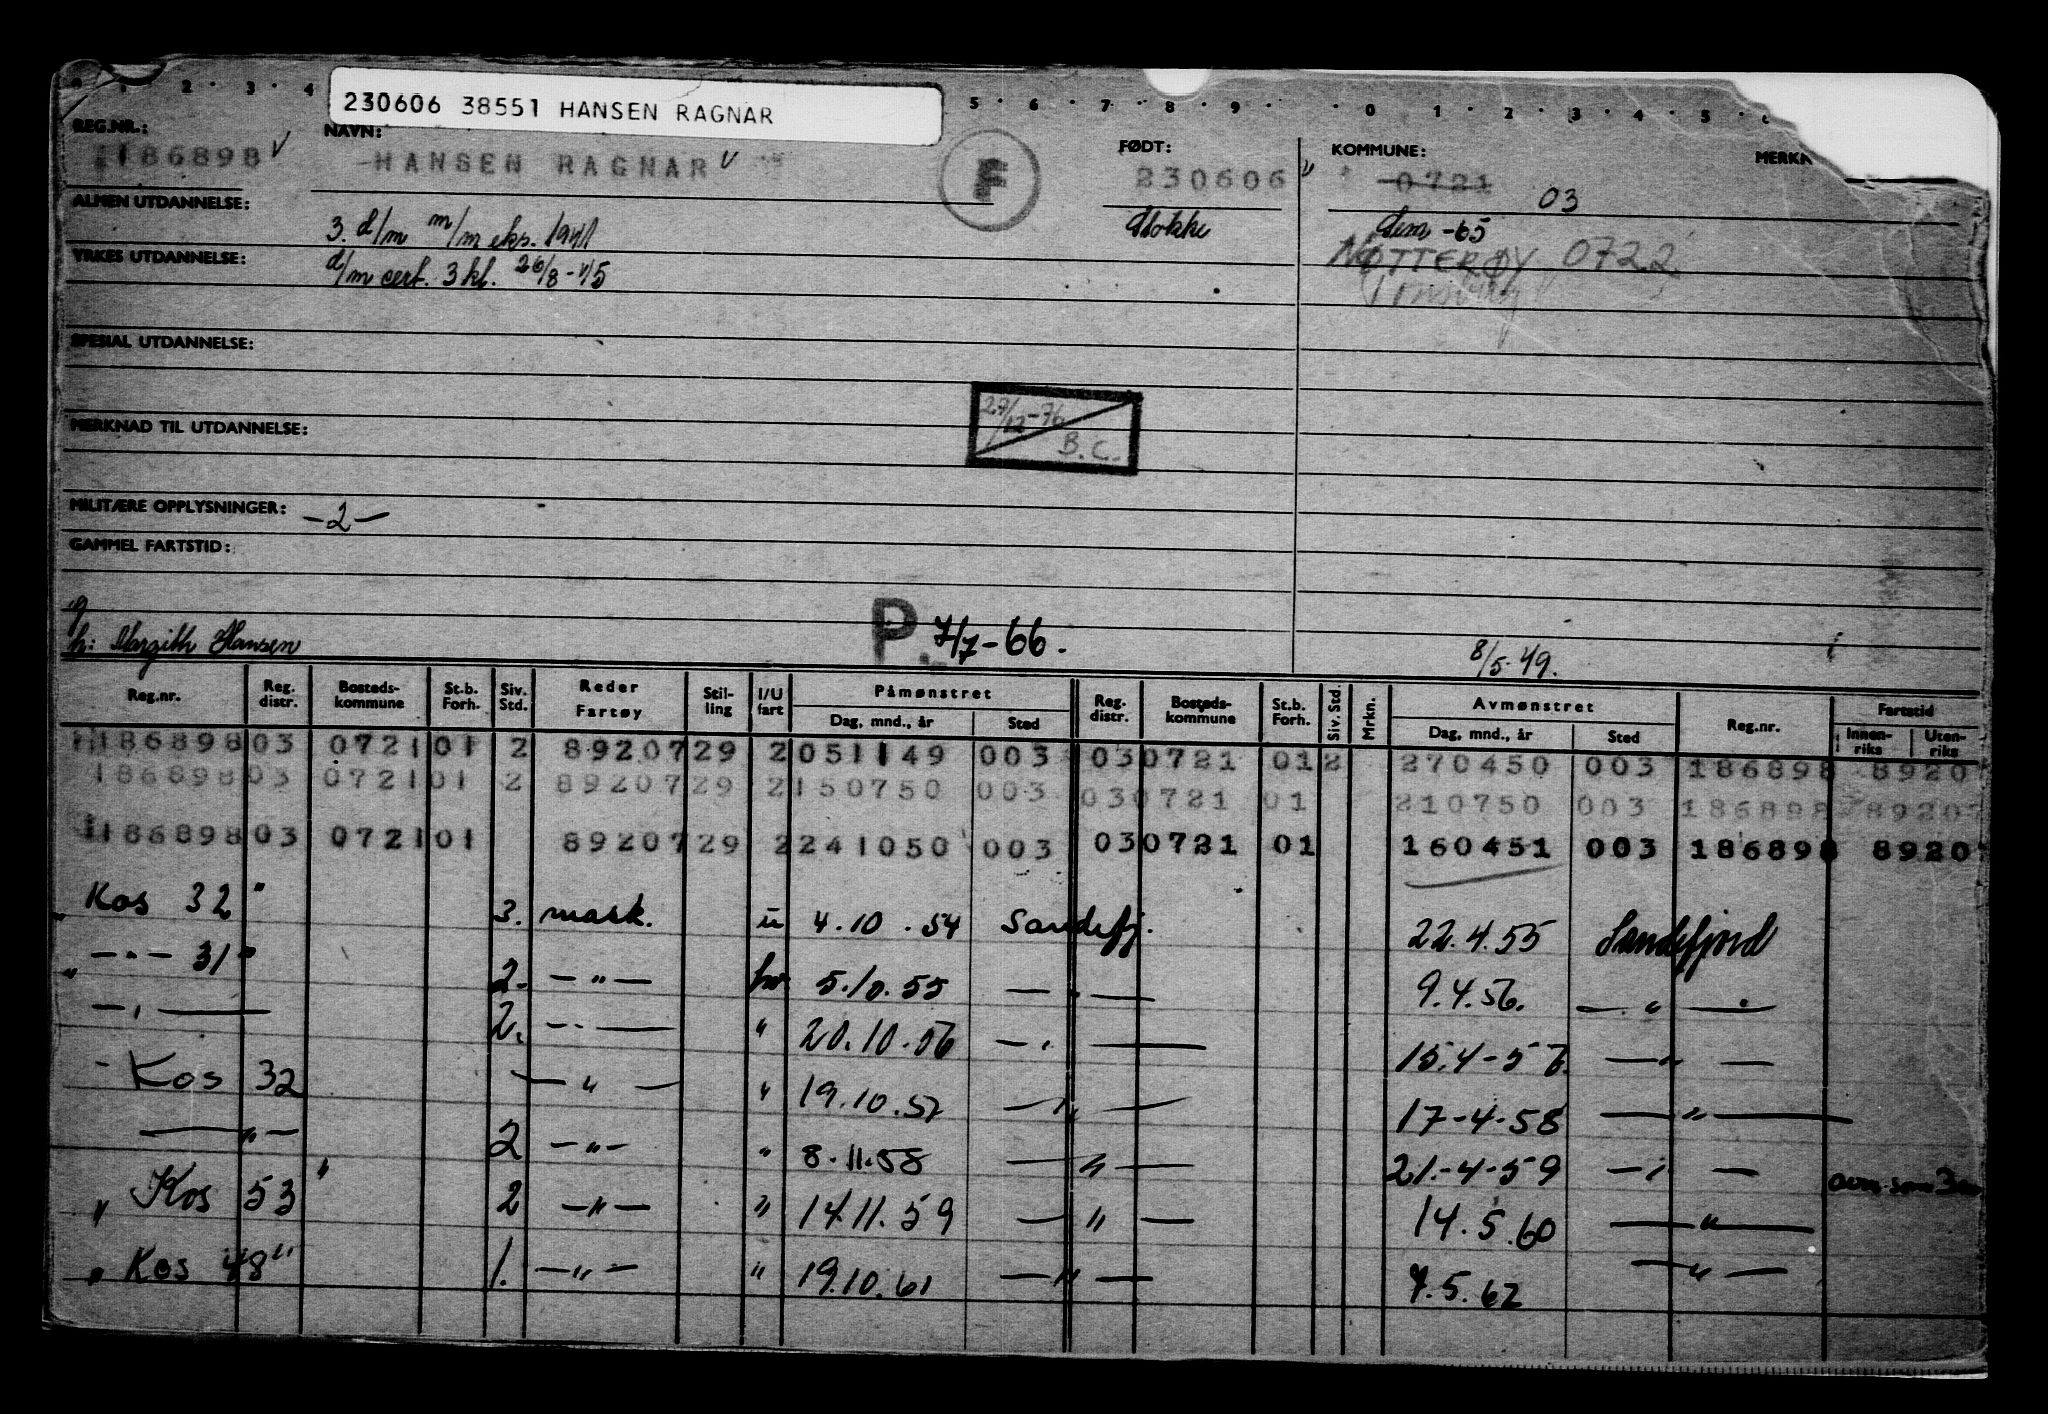 230606 38551 HANSEN RAGNAR
2 · 3 · 4 5 · 6 · 7 · 8 · 9 · 0 1 · 2 · 3 · 4 · 5
REG.NR.: NAVN: FØDT: KOMMUNE: MERKN
186898 v HANSEN RAGNAR v F 230606 v 0721 03
ALMEN UTDANNELSE: 3. d/m m/m eks. 1941 Stokke Sem -65
YRKES UTDANNELSE: d/m cert. 3 kl. 26/8-45 NØTTERØY 0722
SPESIAL UTDANNELSE:
27/12-76
B.C.
MERKNAD TIL UTDANNELSE:
MILITÆRE OPPLYSNINGER: -2-
GAMMEL FARTSTID:
g
h: Margith Hansen P. 7/7-66. 8/5.49.
Reg.nr. Reg. distr. Bosteds-kommune St.b. Forh. Siv. Std. Reder Fartøy Stil-ling I/U fart Påmønstret Dag, mnd., år Sted Reg. distr. Bosteds-kommune St.b. Forh. Siv. Std. Mrkn. Avmønstret Dag, mnd., år Sted Reg.nr. Fartstid Innen-riks Uten-riks
186898 03 0721 01 2 89207 29 2 051149 003 03 0721 01 2 270450 003 186898 8920
186898 03 0721 01 2 89207 29 2 150750 003 03 0721 01 210750 003 186898 89207
186898 03 0721 01 89207 29 2 241050 003 03 0721 01 160451 003 186898 8920
" Kos 32 " 3. mask. u 4.10.54 Sandefj. 22.4.55 Sandefjord
" - " - 31 " 2. - " - 5.10.55 - " - 9.4.56. - " -
- " - 2. - " - " 20.10.56 - " - 15.4-57. - " -
- Kos 32 - " - " 19.10.57 - " - 17-4-58 - " -
- " - 2 - " - " 8.11.58 - " - 21.-4-59 - " -
" Kos 53 " 2 - " - " 14.11.59 - " - 14.5.60 - " -
" Kos 48 " 1. - " - " 19.10.61 - " - 7.5.62 - " -